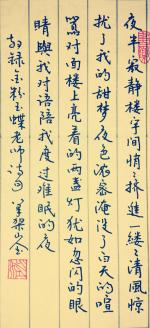 夜半寂静楼宇间悄悄挤进一缕缕清风惊
扰了我的甜梦夜色浓
淹没了白天的喧
嚣对面楼上亮着的两盏灯犹如忽闪的眼
睛与我对语陪我度过难眠的夜
敬录金粉玉蝶老师诗句